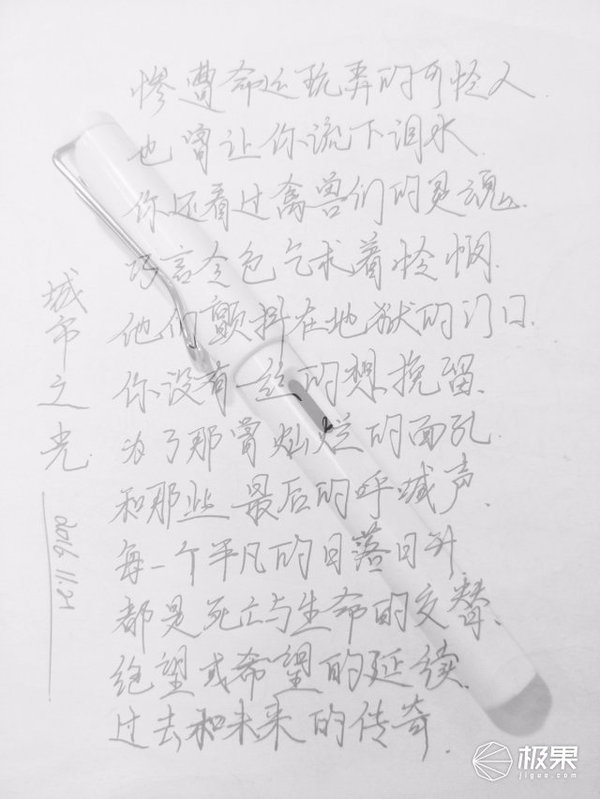 惨遭命运玩弄的可怜人
也曾让你流下泪水
你还看过禽兽们的灵魂
巧言令色气求着怜悯
他们颤抖在地狱的门口
你没有一丝的想挽留
为了那曾灿烂的面孔
和那些最后的呼喊声
每一个平凡的日落日升
都是死亡与生命的交替
绝望或希望的延续
过去和未来的传奇
城市之光
2016 11.21
极果
jiguo.com